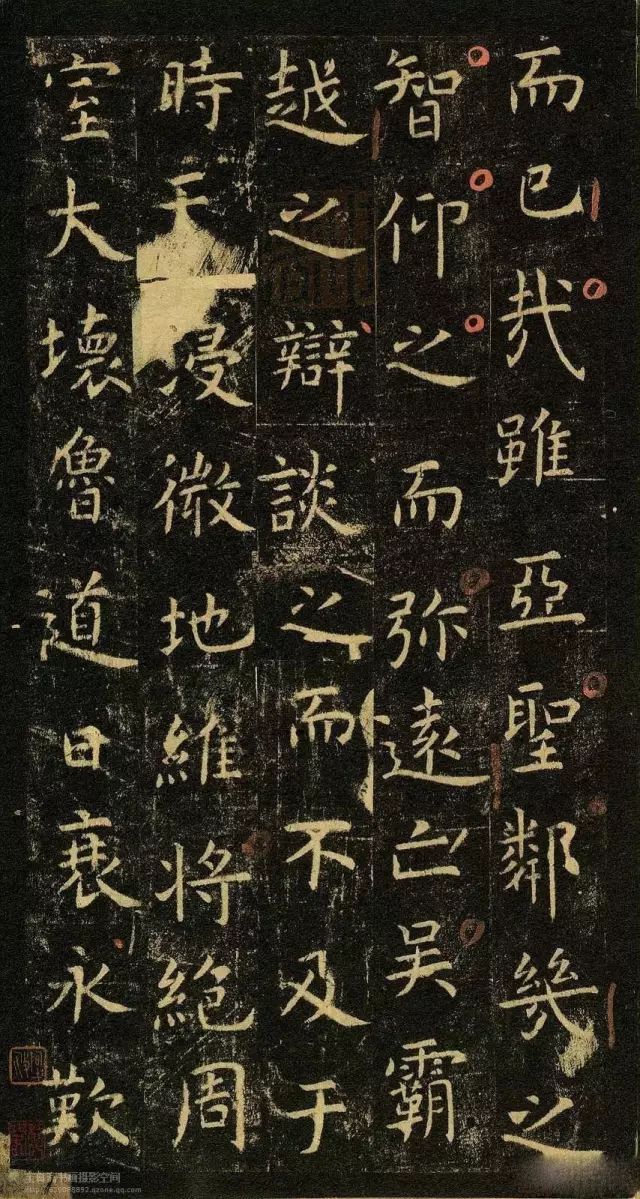 而已哉雖亞聖鄰幾之
智仰之而弥遠亡吳霸
越之辯談之而不及于
時天浸微地維将絶周
室大壞魯道日衰永歎
书画摄影空间